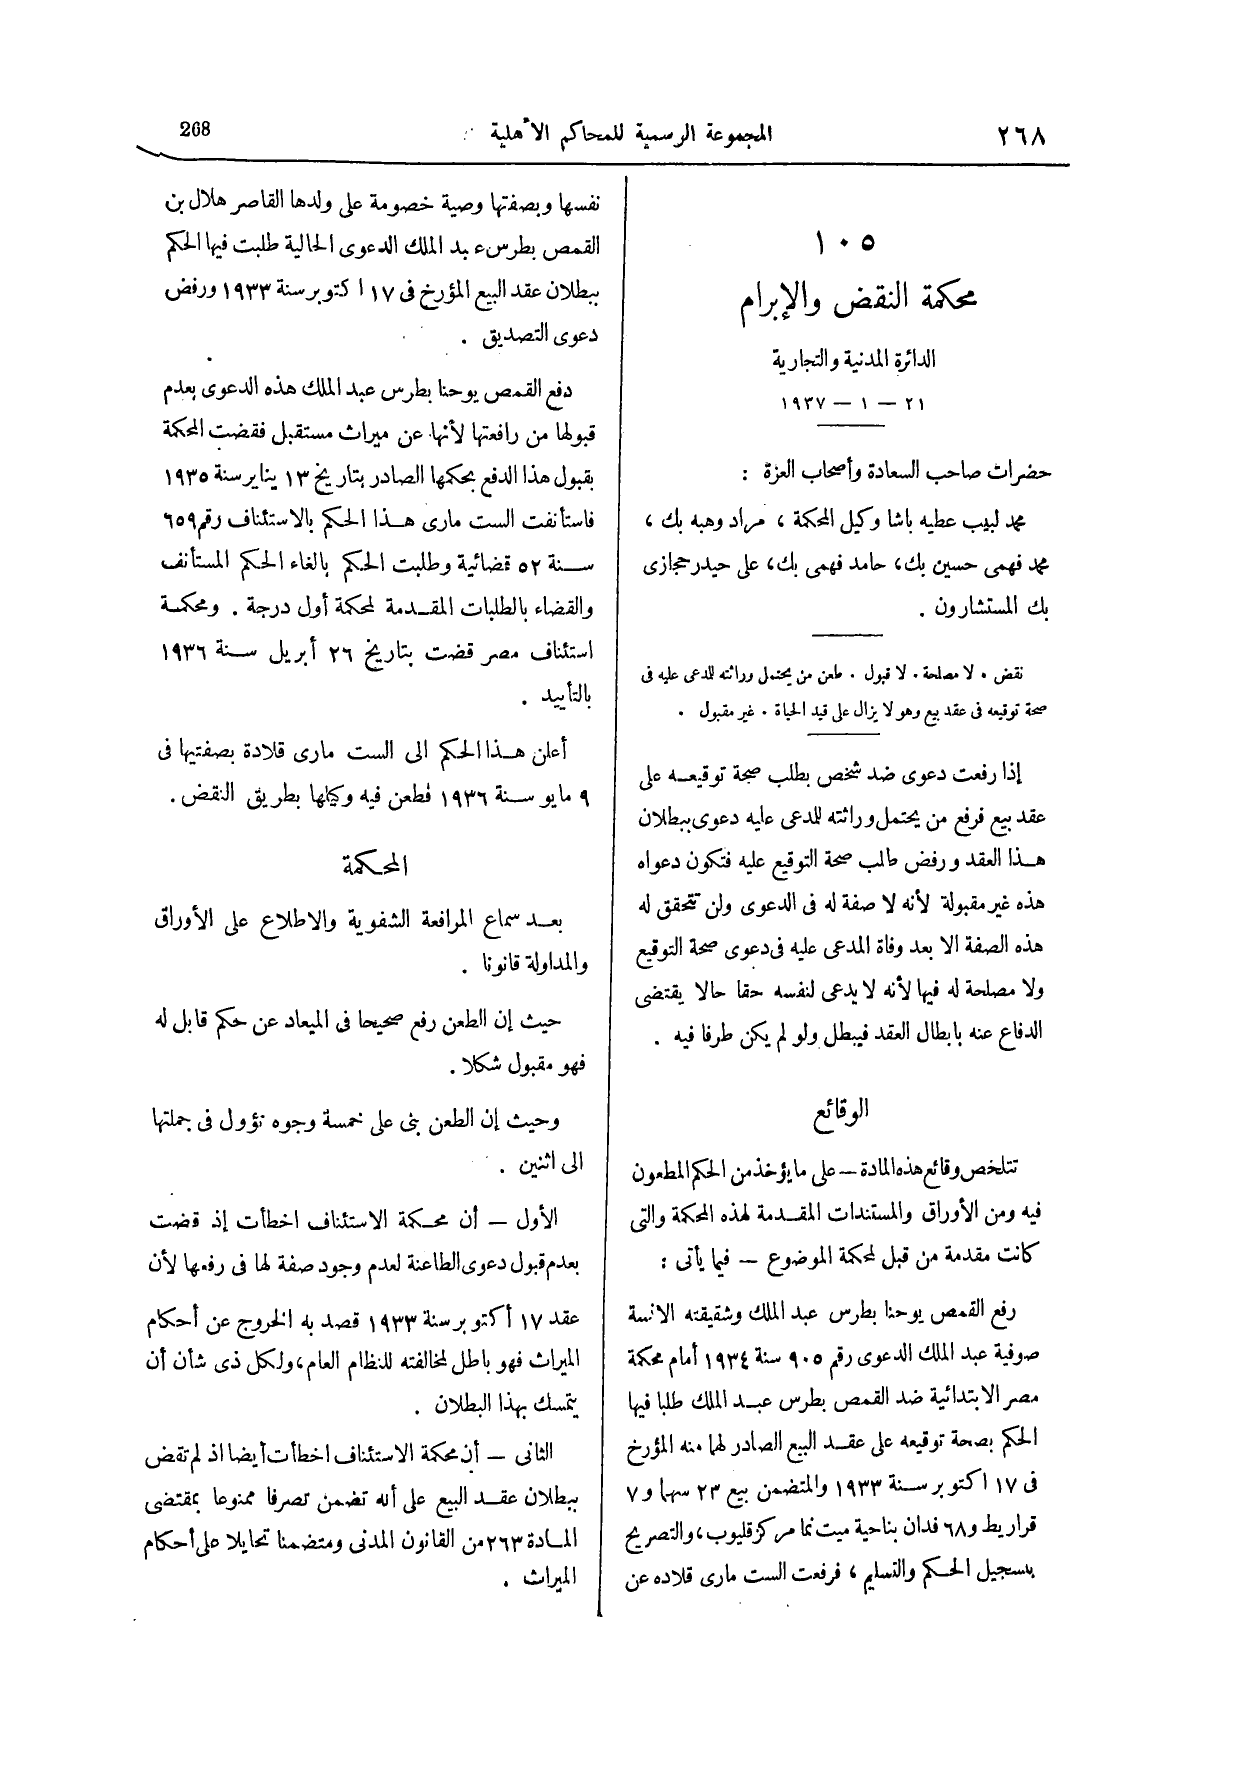 ٢٦٨
المجموعة الرسمية للمحاكم الأهلية
268
١٠٥
محكمة النقض والإبرام
الدائرة المدنية والتجارية
٢١ — ١ — ١٩٣٧
حضرات صاحب السعادة وأصحاب العزة :
محمد لبيب عطيه باشا وكيل المحكمة ، مراد وهبه بك ،
محمد فهمى حسين بك ، حامد فهمى بك ، على حيدر حجازى
بك المستشارون .
نقض . لا مصلحة . لا قبول . طعن من يحتمل وراثته للدعى عليه فى
صحة توقيعه فى عقد بيع وهو لا يزال على قيد الحياة . غير مقبول .
إذا رفعت دعوى ضد شخص بطلب صحة توقيعه على
عقد بيع فرفع من يحتمل وراثته للدعى عليه دعوى ببطلان
هذا العقد ورفض طالب صحة التوقيع عليه فتكون دعواه
هذه غير مقبولة لأنه لا صفة له فى الدعوى ولن تتحقق له
هذه الصفة الا بعد وفاة المدعى عليه فى دعوى صحة التوقيع
ولا مصلحة له فيها لأنه لا يدعى لنفسه حقا حالا يقتضى
الدفاع عنه بابطال العقد فيبطل ولو لم يكن طرفا فيه .
الوقائع
تتلخص وقائع هذه المادة — على ما يؤخذ من الحكم المطعون
فيه ومن الأوراق والمستندات المقدمة لهذه المحكمة والتى
كانت مقدمة من قبل لمحكمة الموضوع — فيما يأتى :
رفع القمص يوحنا بطرس عبد الملك وشقيقته الانسة
صوفية عبد الملك الدعوى رقم ٩٠٥ سنة ١٩٣٤ أمام محكمة
مصر الابتدائية ضد القمص بطرس عبد الملك طلبا فيها
الحكم بصحة توقيعه على عقد البيع الصادر لهما منه المؤرخ
فى ١٧ اكتوبر سنة ١٩٣٣ والمتضمن بيع ٢٣ سهما و٧
قراريط و٦٨ فدان بناحية ميت نما مركز قليوب ، والتصريح
بتسجيل الحكم والتسليم ، فرفعت الست مارى قلاده عن
نفسها وبصفتها وصية خصومة على ولدها القاصر هلال بن
القمص بطرس عبد الملك الدعوى الحالية طلبت فيها الحكم
ببطلان عقد البيع المؤرخ فى ١٧ اكتوبر سنة ١٩٣٣ ورفض
دعوى التصديق .
دفع القمص يوحنا بطرس عبد الملك هذه الدعوى بعدم
قبولها من رافعتها لأنها عن ميراث مستقبل فقضت المحكمة
بقبول هذا الدفع بحكمها الصادر بتاريخ ١٣ يناير سنة ١٩٣٥
فاستأنفت الست مارى هذا الحكم بالاستئناف رقم ٦٥٩
سنة ٥٢ قضائية وطلبت الحكم بالغاء الحكم المستأنف
والقضاء بالطلبات المقدمة لمحكمة أول درجة . ومحكمة
استئناف مصر قضت بتاريخ ٢٦ أبريل سنة ١٩٣٦
بالتأييد .
أعلن هذا الحكم الى الست مارى قلادة بصفتيها فى
٩ مايو سنة ١٩٣٦ فطعن فيه وكيلها بطريق النقض .
المحكمة
بعد سماع المرافعة الشفوية والاطلاع على الأوراق
والمداولة قانونا .
حيث إن الطعن رفع صحيحا فى الميعاد عن حكم قابل له
فهو مقبول شكلا .
وحيث إن الطعن بنى على خمسة وجوه تؤول فى جملتها
الى اثنين .
الأول — أن محكمة الاستئناف اخطأت إذ قضت
بعدم قبول دعوى الطاعنة لعدم وجود صفة لها فى رفعها لأن
عقد ١٧ أكتوبر سنة ١٩٣٣ قصد به الخروج عن أحكام
الميراث فهو باطل لمخالفته للنظام العام ، ولكل ذى شأن أن
يتمسك بهذا البطلان .
الثانى — أن محكمة الاستئناف اخطأت أيضا اذ لم تقض
ببطلان عقد البيع على أنه تضمن تصرفا ممنوعا بمقتضى
المادة ٢٦٣ من القانون المدنى ومتضمنا تحايلا على أحكام
الميراث .